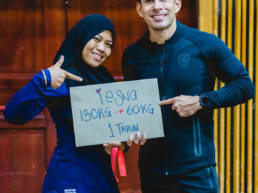 130KG → 60KG
1 TAHUN